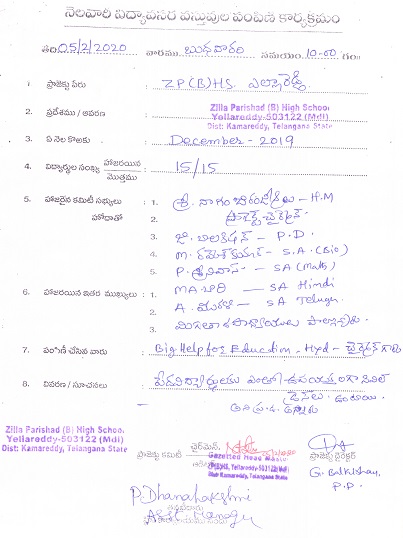 నెలవారీ విద్యావసర వస్తువుల పంపిణీ కార్యక్రమం
తేది: 05/2/2020 వారము బుధవారం సమయం. 10-00 గం॥
1 ప్రాజెక్టు పేరు : ZP(B)HS. ఎల్లారెడ్డి
2. ప్రదేశము / ఆవరణ : Zilla Parishad (B) High School
Yellareddy-503122 (Mdl)
Dist: Kamareddy, Telangana State
3. ఏ నెల కొఱకు : December - 2019
4. విద్యార్థుల సంఖ్య హాజరయిన / మొత్తము : 15/15
5. హాజరైన కమిటీ సభ్యులు : 1. శ్రీ నాగం - H.M
హోదాతో 2.
3. జి. బాలకిషన్ - P.D.
4. M. రమేశ్ కుమార్ - S.A. (Bio)
5. P. శ్రీనివాస్ - SA (Maths)
6. హాజరయిన ఇతర ముఖ్యులు : 1. MA. బారి - SA Hindi
2. A. మురళి - SA Telugu
3. మిగతా ఉపాధ్యాయులు పాల్గొన్నారు.
7. పంపిణీ చేసిన వారు : Big Help for Education. Hyd - చైర్మన్ గారు
8. వివరణ / సూచనలు : పేద విద్యార్థులకు ఎంతో ఉపయుక్తంగా
ఉంటాయి.
Zilla Parishad (B) High School
Yellareddy-503122 (Mdl)
Dist: Kamareddy, Telangana State
ప్రాజెక్టు కమిటీ చైర్మెన్,
Gazetted Head Master
ZP(B)HS, Yellareddy-503122 (Mdl)
Dist: Kamareddy, Telangana State
ప్రాజెక్టు డైరెక్టర్
G. Balkishan,
P.D.
P. Dhanalakshmi
Asst. Manager